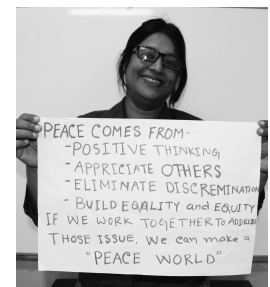 PEACE COMES FROM-
- POSITIVE THINKING
- APPRICIATE OTHERS
- ELIMINATE DISCREMINATION
- BUILD EQALITY and EQUITY
IF WE WORK TOGETHER TO ADDRESS
THOSE ISSUE, We can make a
"PEACE WORLD"